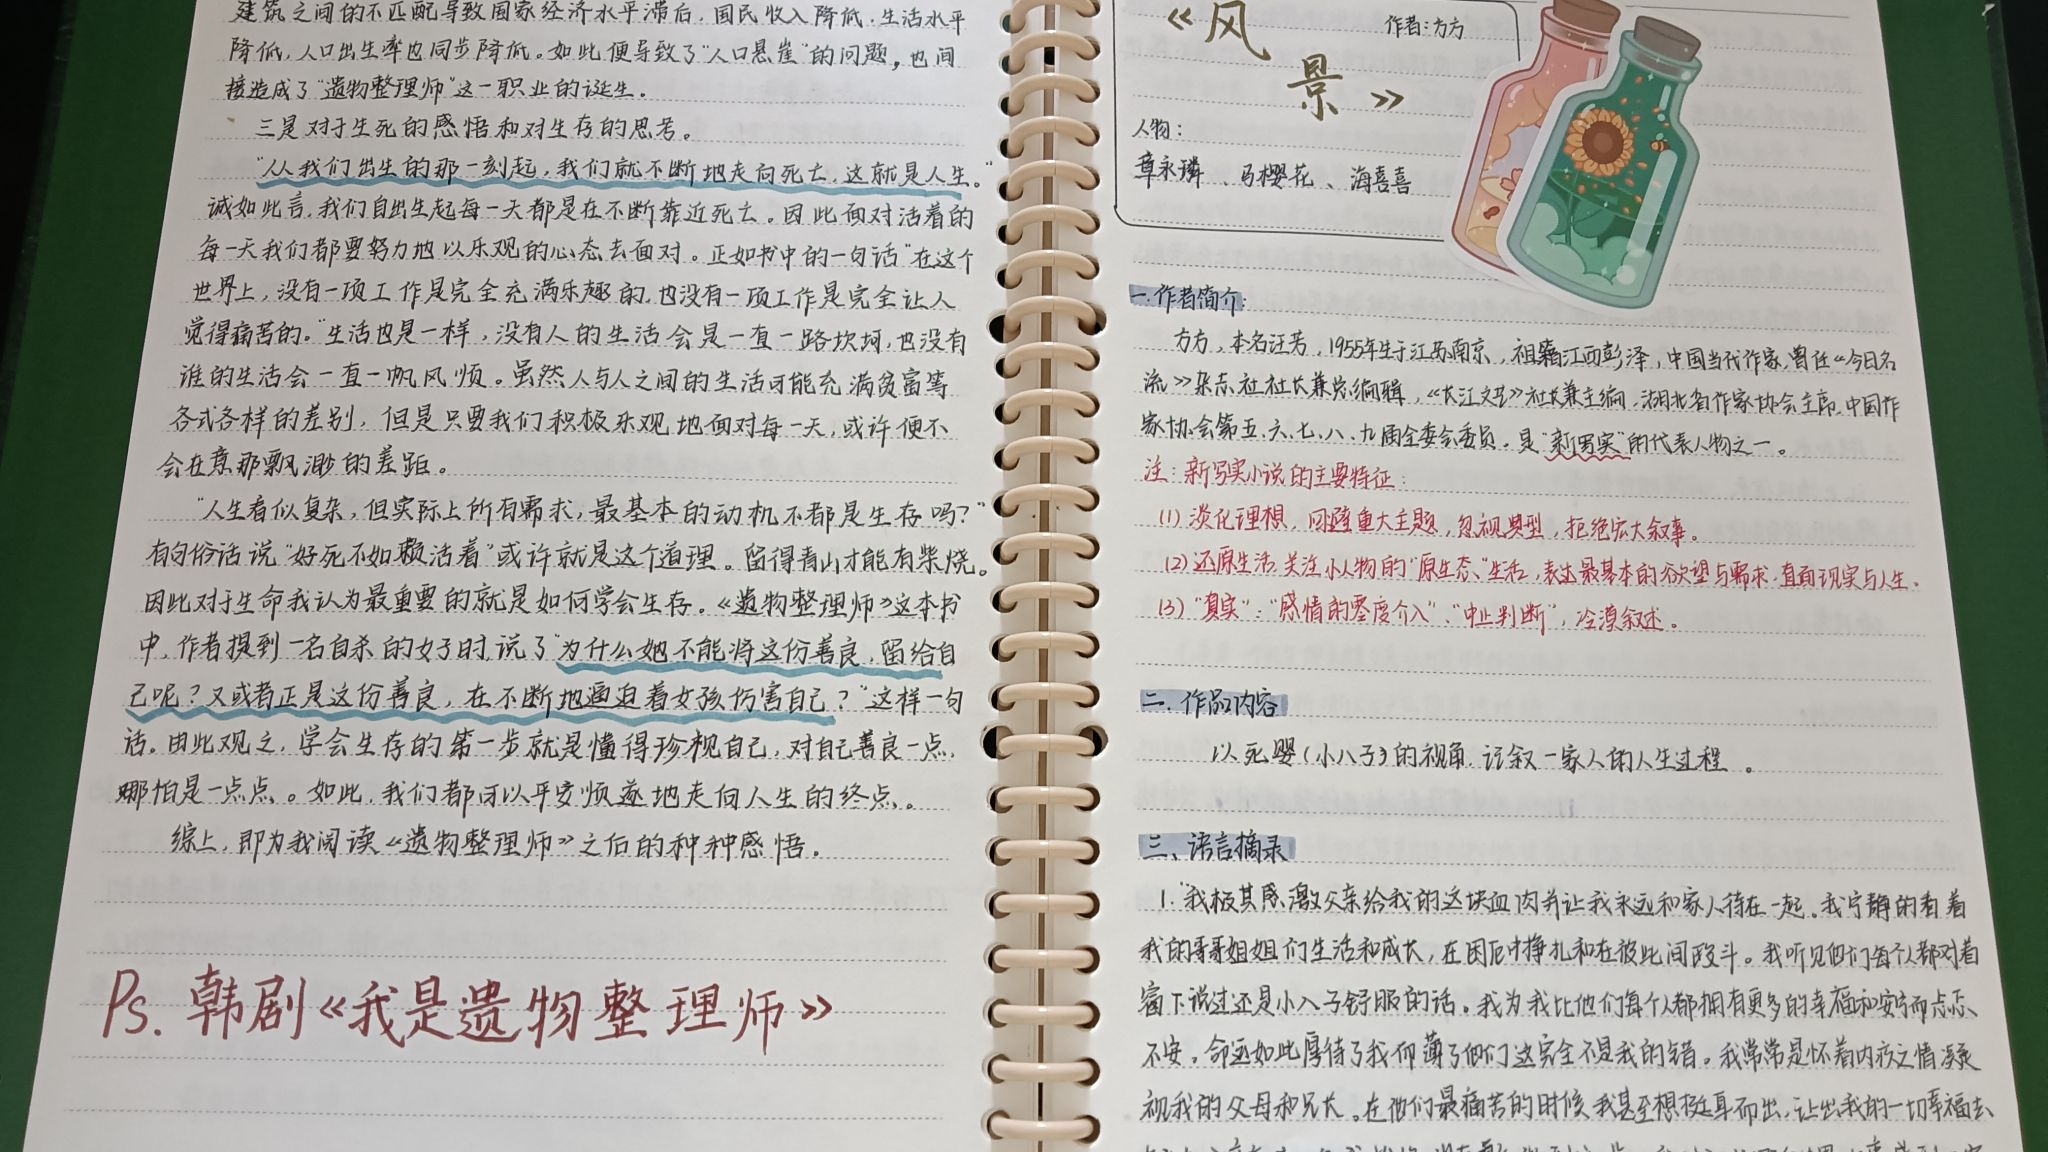 建筑之间的不匹配导致国家经济水平滞后,国民收入降低,生活水平
降低,人口出生率也同步降低。如此便导致了"人口悬崖"的问题,也间
接造成了"遗物整理师"这一职业的诞生。
三是对于生死的感悟和对生存的思考。
"从我们出生的那一刻起,我们就不断地走向死亡,这就是人生。"
诚如此言,我们自出生起每一天都是在不断靠近死亡。因此面对活着的
每一天我们都要努力地以乐观的心态去面对。正如书中的一句话"在这个
世界上,没有一项工作是完全充满乐趣的,也没有一项工作是完全让人
觉得痛苦的。"生活也是一样,没有人的生活会是一直一路坎坷,也没有
谁的生活会一直一帆风顺。虽然人与人之间的生活可能充满贫富等
各式各样的差别,但是只要我们积极乐观地面对每一天,或许便不
会在意那飘渺的差距。
"人生看似复杂,但实际上所有需求,最基本的动机不都是生存吗?"
有句俗话说"好死不如赖活着"或许就是这个道理。留得青山才能有柴烧。
因此对于生命我认为最重要的就是如何学会生存。《遗物整理师》这本书
中,作者提到一名自杀的女子时,说了"为什么她不能将这份善良,留给自
己呢?又或者正是这份善良,在不断地逼迫着女孩伤害自己?"这样一句
话。由此观之,学会生存的第一步就是懂得珍视自己,对自己善良一点,
哪怕是一点点。如此,我们都可以平安顺遂地走向人生的终点。
综上,即为我阅读《遗物整理师》之后的种种感悟。
Ps. 韩剧《我是遗物整理师》
《风
景》
作者:方方
人物:
章永璘、马樱花、海喜喜
一.作者简介:
方方,本名汪芳,1955年生于江苏南京,祖籍江西彭泽,中国当代作家,曾任《今日名
流》杂志社社长兼总编辑,《长江文艺》社长兼主编,湖北省作家协会主席,中国作
家协会第五、六、七、八、九届全委会委员。是"新写实"的代表人物之一。
注:新写实小说的主要特征:
(1)淡化理想,回避重大主题,忽视典型,拒绝宏大叙事。
(2)还原生活,关注小人物的"原生态"生活,表达最基本的欲望与需求,直面现实与人生.
(3)"真实":"感情的零度介入"、"中止判断",冷漠叙述。
二.作品内容
以死婴(小八子)的视角,记叙一家人的人生过程。
三、语言摘录
1."我极其感激父亲给我的这块血肉并让我永远和家人待在一起。我宁静的看着
我的哥哥姐姐们生活和成长,在困厄中挣扎和在彼此间殴斗。我听见他们每个人都对着
窗下说过还是小八子舒服的话。我为我比他们每个人都拥有更多的幸福和安宁而忐忑
不安。命运如此厚待了我而薄了他们这完全不是我的错。我常常是怀着内疚之情凝
视我的父母和兄长。在他们最痛苦的时候我甚至想挺身而出,让出我的一切幸福去